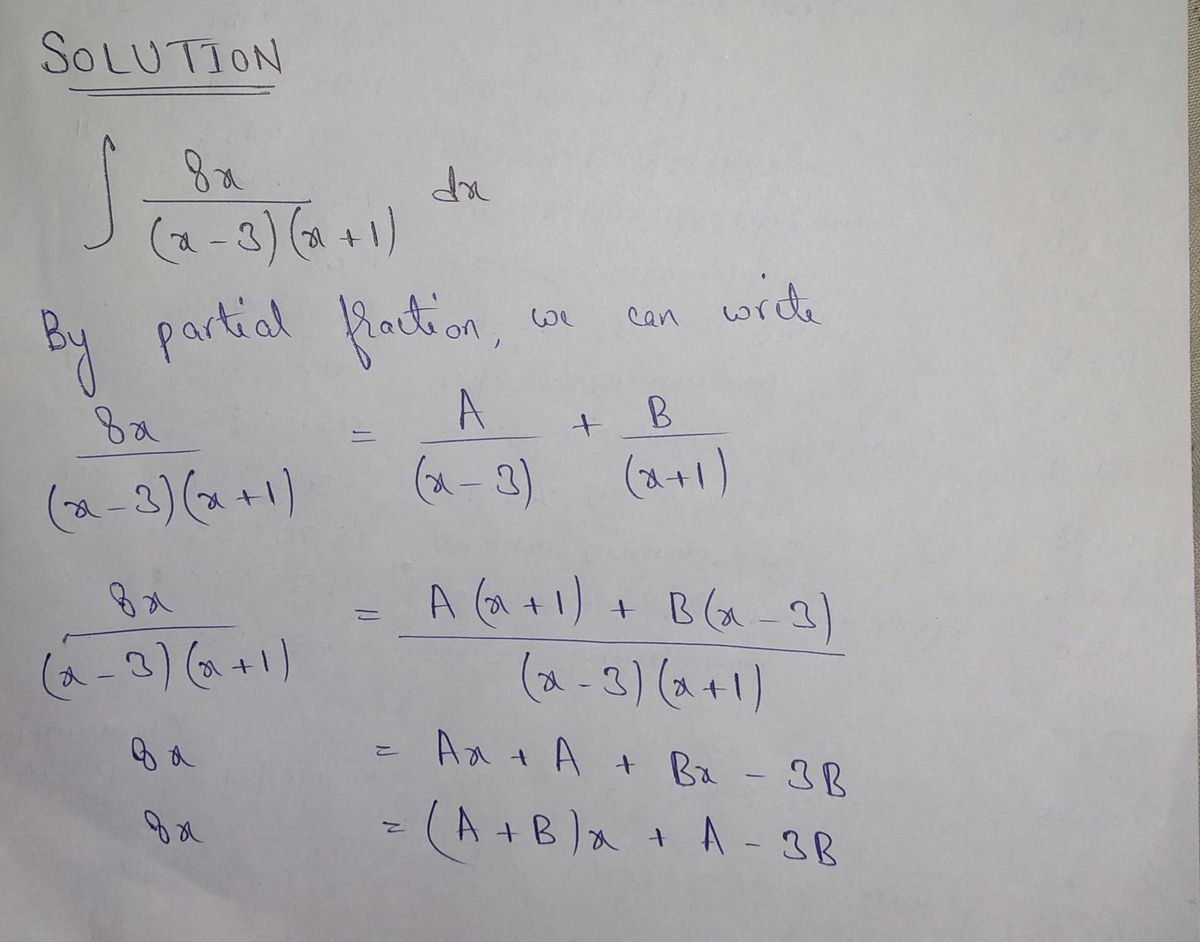 SOLUTION
∫ 8x / (x-3)(x+1) dx
By partial fraction, we can write
8x / (x-3)(x+1) = A / (x-3) + B / (x+1)
8x / (x-3)(x+1) = A(x+1) + B(x-3) / (x-3)(x+1)
8x = Ax + A + Bx - 3B
8x = (A+B)x + A - 3B